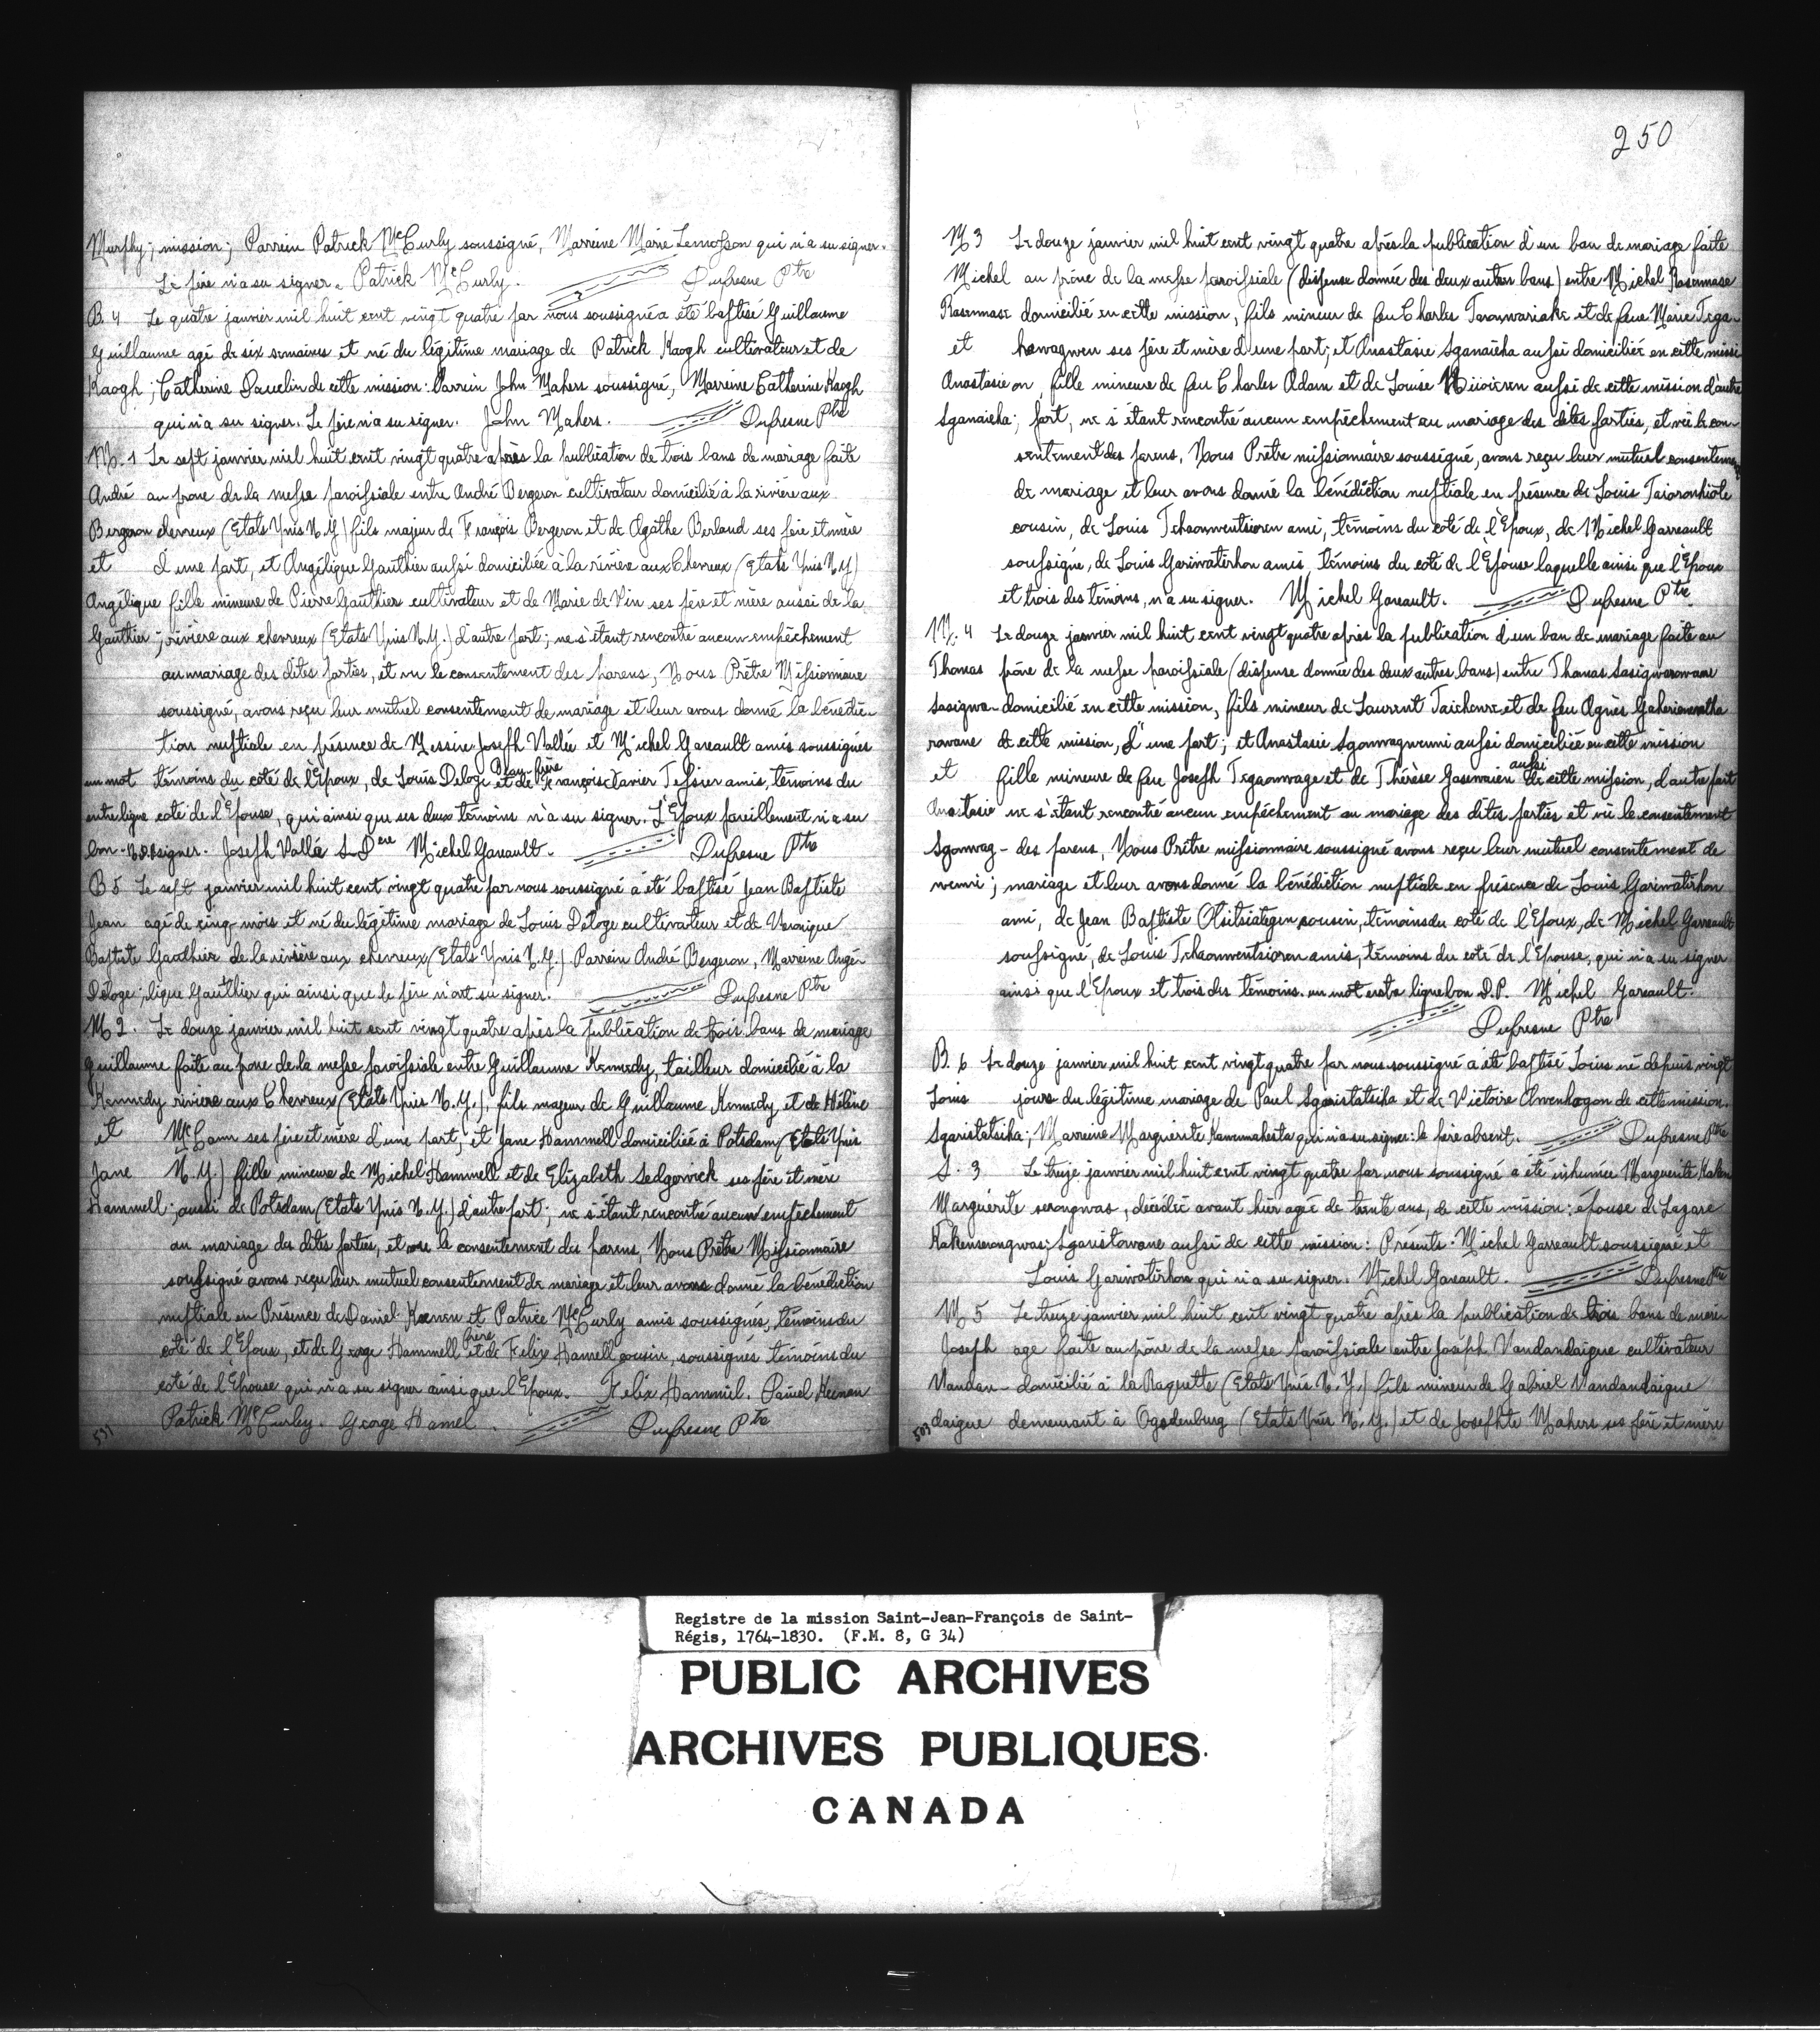 Murphy; mission; Parrein Patrick McCurly soussigné, Marreine Marie qui n'a su signer.
Le père n'a su signer. Patrick McCurly. Dufresne Ptre
B. 4 Le quatre janvier mil huit cent vingt quatre par nous soussigné a été baptisé Guillaume
Guillaume agé de six semaines et né du légitime mariage de Patrick Kaogh cultivateur et de
Kaogh; Catherine de cette mission: Parrein John Mahers soussigné, Marreine Catherine Kaogh
qui n'a su signer. Le père n'a su signer. John Mahers. Dufresne Ptre
M. 1 Le sept janvier mil huit cent vingt quatre après la publication de trois bans de mariage faite
André au prone de la messe paroissiale entre André Bergeron cultivateur domicilié à la rivière aux
Bergeron chevreux (Etats Unis N.Y) fils majeur de François Bergeron et de Agathe Berland ses père et mère
et d'une part, et Angélique Gauthier aussi domiciliée à la rivière aux Chevreux (Etats Unis N.Y)
Angélique fille mineure de Pierre Gauthier cultivateur et de Marie de Vin ses père et mère aussi de la
Gauthier; rivière aux chevreux (Etats Unis N.Y.) d'autre part; ne s'étant rencontré aucun empêchement
au mariage des dites parties, et vu le consentement des parens, Nous Prêtre Missionnaire
soussigné, avons reçu leur mutuel consentement de mariage et leur avons donné la bénédic-
tion nuptiale en présence de Messire Joseph Vallée et Michel Gareault amis soussignés
un mot témoins du coté de l'Epoux, de Louis Deloge beau frère et de François Xavier Tessier amis, témoins du
entreligne coté de l'Epouse, qui ainsi que ses deux témoins n'a su signer. L'Epoux pareillement n'a su
bon - D.P. signer. Joseph Vallée S Dcre Michel Gareault. Dufresne Ptre
B 5 Le sept janvier mil huit cent vingt quatre par nous soussigné a été baptisé Jean Baptiste
Jean agé de cinq mois et né du légitime mariage de Louis Deloge cultivateur et de Véronique
Baptiste Gauthier de la rivière aux chevreux (Etats Unis N.Y.) Parrein André Bergeron, Marreine Angé-
Deloge; lique Gauthier qui ainsi que le père n'ont su signer. Dufresne Ptre
M 2. Le douze janvier mil huit cent vingt quatre après la publication de trois bans de mariage
Guillaume faite au prone de la messe paroissiale entre Guillaume Kennedy, tailleur domicilié à la
Kennedy rivière aux Chevreux (Etats Unis N.Y.), fils majeur de Guillaume Kennedy et de Hélène
et McCann ses père et mère d'une part, et Jane Hammell domiciliée à Potsdam (Etats Unis
Jane N.Y.) fille mineure de Michel Hammell et de Elizabeth Sedgerwick ses père et mère
Hammell; aussi de Potsdam (Etats Unis N.Y.) d'autre part; ne s'étant rencontré aucun empêchement
au mariage des dites parties, et vu le consentement des parens, Nous Prêtre Missionnaire
soussigné avons reçu leur mutuel consentement de mariage et leur avons donné la bénédiction
nuptiale en Présence de Daniel Keenan et Patrice McCurly amis soussignés, témoins du
coté de l'Epoux, et de George Hammell frère et de Felix Hamell cousin, soussignés témoins du
coté de l'Epouse qui n'a su signer ainsi que l'Epoux. Felix Hammil. Daniel Keenan
Patrick McCurley. George Hamel. Dufresne Ptre
250
M 3 Le douze janvier mil huit cent vingt quatre après la publication d'un ban de mariage faite
Michel au prône de la messe paroissiale (dispense donnée des deux autres bans) entre Michel Rasennase
Rasennase domicilié en cette mission, fils mineur de feu Charles Tarowariake et de feue Marie Tega-
et hawagwen ses père et mère d'une part; et Anastasie Sganaieha aussi domiciliée en cette missi
Anastasie on, fille mineure de feu Charles Adam et de Louise aussi de cette mission d'autre
Sganaieha; part, ne s'étant rencontré aucun empêchement au mariage des dites parties, et vû le con-
sentement des parens, Nous Prêtre missionnaire soussigné, avons reçu leur mutuel consentement
de mariage et leur avons donné la bénédiction nuptiale en présence de Louis Taioronhiote
cousin, de Louis Tehaonwentsioren ami, témoins du coté de l'Epoux, de Michel Garreault
soussigné, de Louis Gariwatirhon amis, témoins du coté de l'Epouse laquelle ainsi que l'Epoux
et trois des témoins, n'a su signer. Michel Gareault. Dufresne Ptre
M. 4 Le douze janvier mil huit cent vingt quatre après la publication d'un ban de mariage faite au
Thomas prône de la messe paroissiale (dispense donnée des deux autres bans) entre Thomas Sasigwarowane
Sasigwa- domicilié en cette mission, fils mineur de Laurent Taichenre et de feu Agnès
rowane de cette mission, d'une part; et Anastasie Sgonwagwenni aussi domiciliée en cette mission
et fille mineure de feu Joseph Tegaonwage et de Thérèse Gasennaien aussi de cette mission, d'autre part
Anastasie ne s'étant rencontré aucun empêchement au mariage des dites parties et vû le consentement
Sgonwag- des parens, Nous Prêtre missionnaire soussigné avons reçu leur mutuel consentement de
wenni; mariage et leur avons donné la bénédiction nuptiale en présence de Louis Gariwatirhon
ami, de Jean Baptiste Otsitsiategen cousin, témoins du coté de l'Epoux, de Michel Garreault
soussigné, de Louis Tehaonwentsioren amis, témoins du coté de l'Epouse, qui n'a su signer
ainsi que l'Epoux et trois des témoins. un mot entre ligne bon D.P. Michel Gareault.
Dufresne Ptre
B. 6 Le douze janvier mil huit cent vingt quatre par nous soussigné a été baptisé Louis né depuis vingt
Louis jours du légitime mariage de Paul Sgaristatsika et de Victoire Awenhogon de cette mission.
Sgaristatsika; Marreine Marguerite qui n'a su signer: le père absent. Dufresne Ptre
S. 3 Le treize janvier mil huit cent vingt quatre par nous soussigné a été inhumée Marguerite Kaken
Marguérite serongwas, décédée avant hier agée de trente ans, de cette mission: épouse de Lazare
Kakenserongwas; Sgaristowane aussi de cette mission: Présents Michel Garreault soussigné et
Louis Gariwatirhon qui n'a su signer. Michel Gareault. Dufresne Ptre
M 5 Le treize janvier mil huit cent vingt quatre après la publication de trois bans de mari
Joseph age faite au prône de la messe paroissiale entre Joseph Vandandaigue cultivateur
Vandan- domicilié à la Raquette (Etats Unis N.Y.) fils mineur de Gabriel Vandandaigue
daigue demeurant à Ogdenburg (Etats Unis N.Y.) et de Josephte Mahers ses père et mère
Registre de la mission Saint-Jean-François de Saint-
Régis, 1764-1830. (F.M. 8, G 34)
PUBLIC ARCHIVES
ARCHIVES PUBLIQUES
CANADA